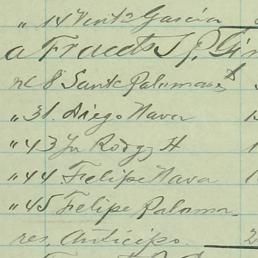 " 14 Vent² García
a Fracts S. P. Gir
nc 8 Sante Palomares
" 31 Diego Nava
" 43 Jn Rodgz H
" 44 Felipe Nava
" 45 Felipe Paloma-
res, Anticipo 2